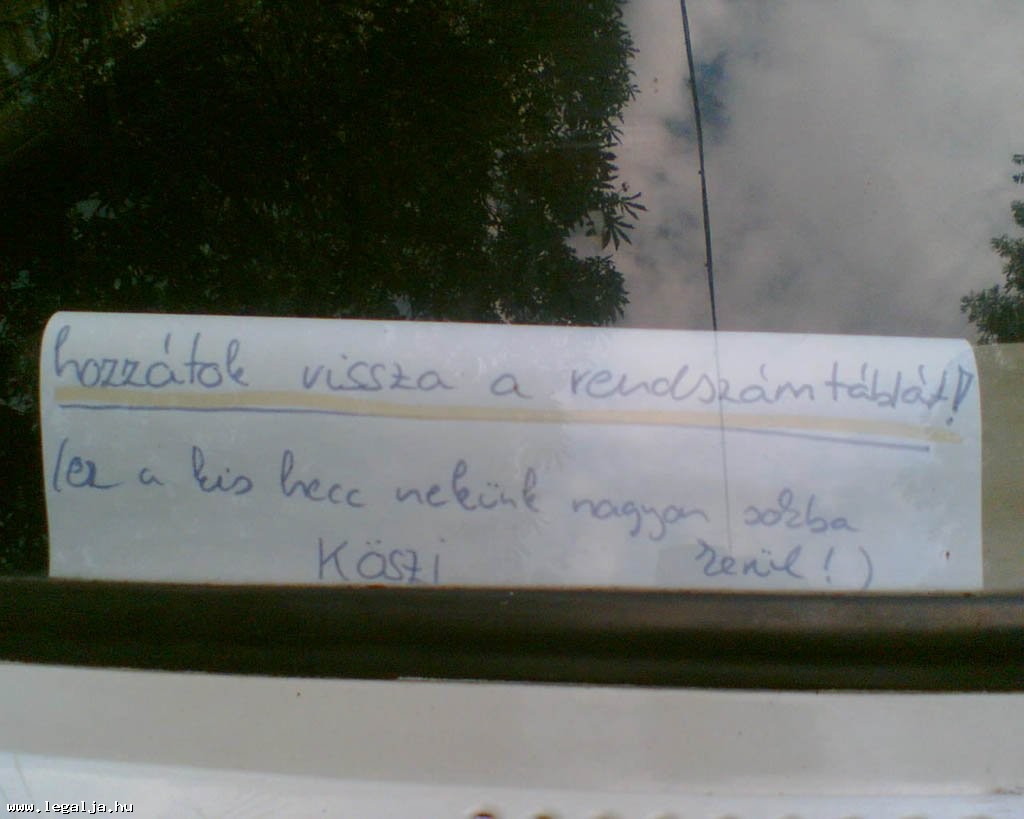 hozzátok vissza a rendszámtáblát!
(ez a kis hecc nekünk nagyon sokba
Köszi rerül!)
www.legalja.hu